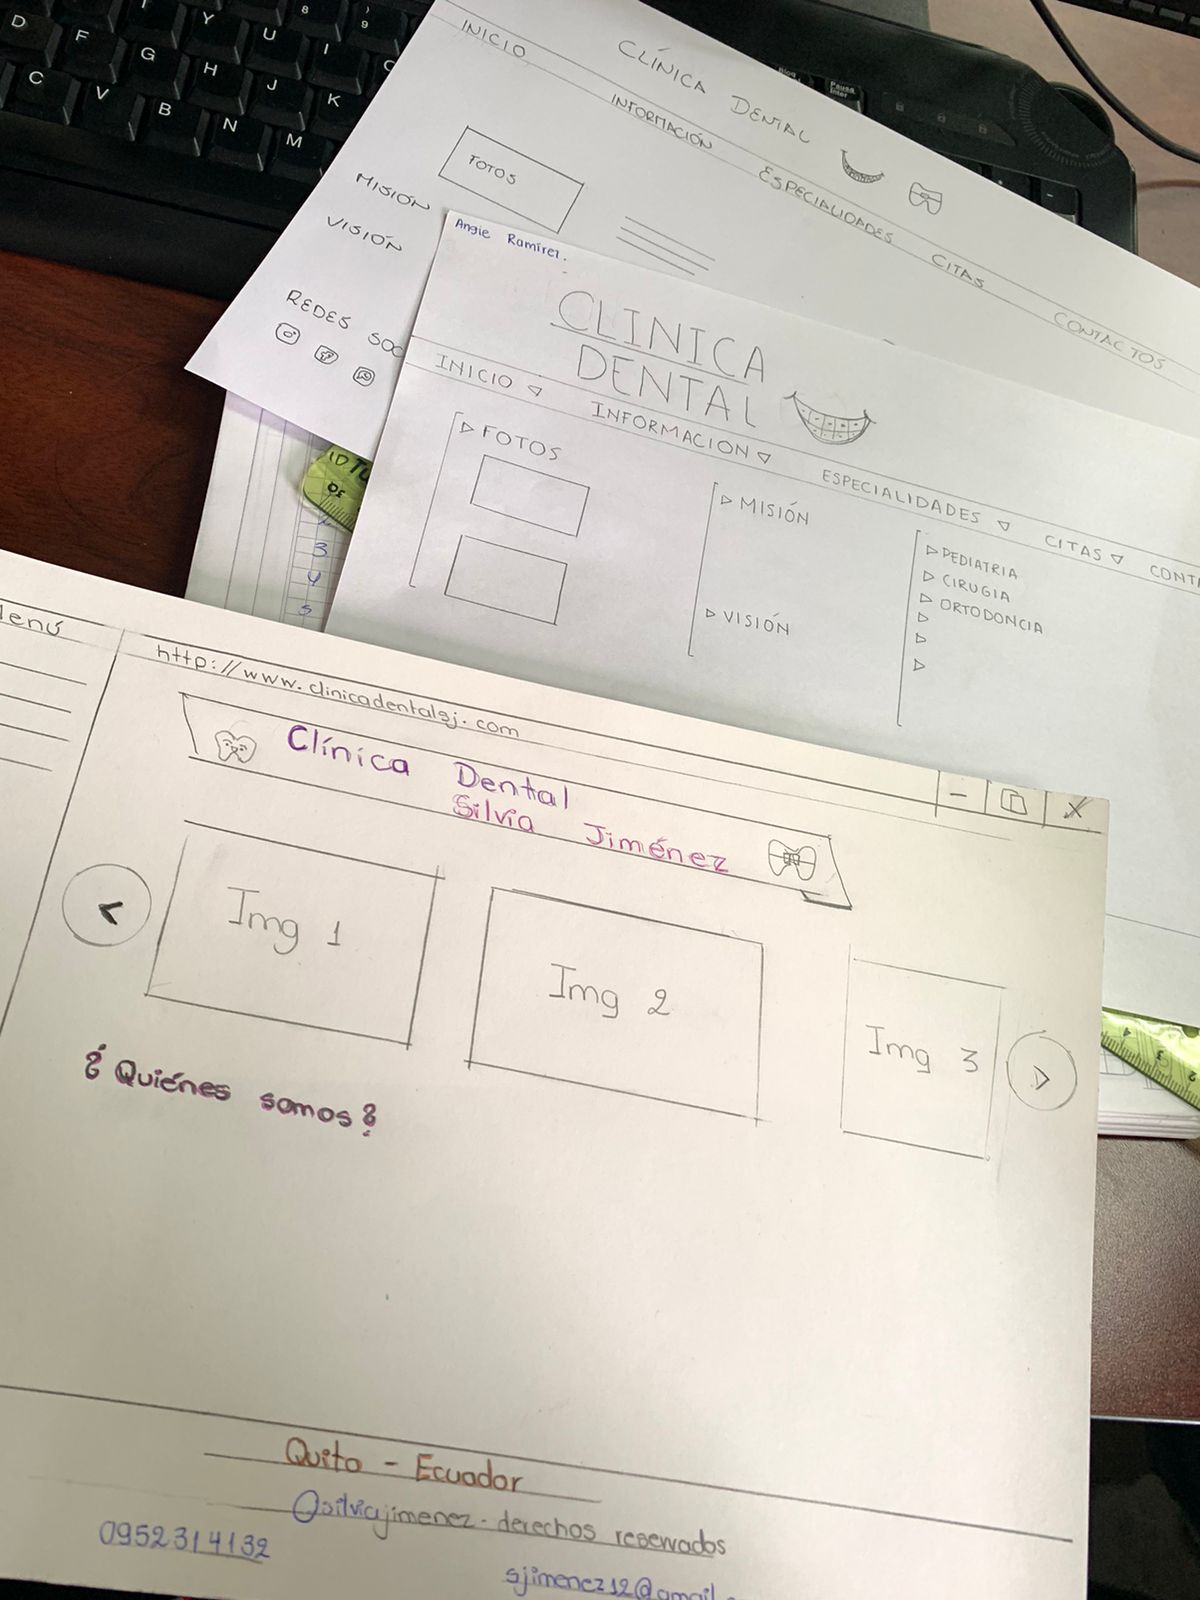 CLÍNICA DENTAL
INICIO
INFORMACIÓN
ESPECIALIDADES
CITAS
CONTACTOS
FOTOS
MISIÓN
VISIÓN
REDES SOC
Angie Ramírez.
CLINICA
DENTAL
INICIO
INFORMACION
ESPECIALIDADES
CITAS
CONT
FOTOS
MISIÓN
VISIÓN
PEDIATRIA
CIRUGIA
ORTODONCIA
3
4
5
Menú
http://www.clinicadentalsj.com
Clínica Dental
Silvia Jiménez
Img 1
Img 2
Img 3
¿Quiénes somos?
Quito - Ecuador
@silviajimenez - derechos reservados
0952314132
sjimenez12@gmail
D F G H J K
Y U I
C V B N M
8
9
Pausa
Inter